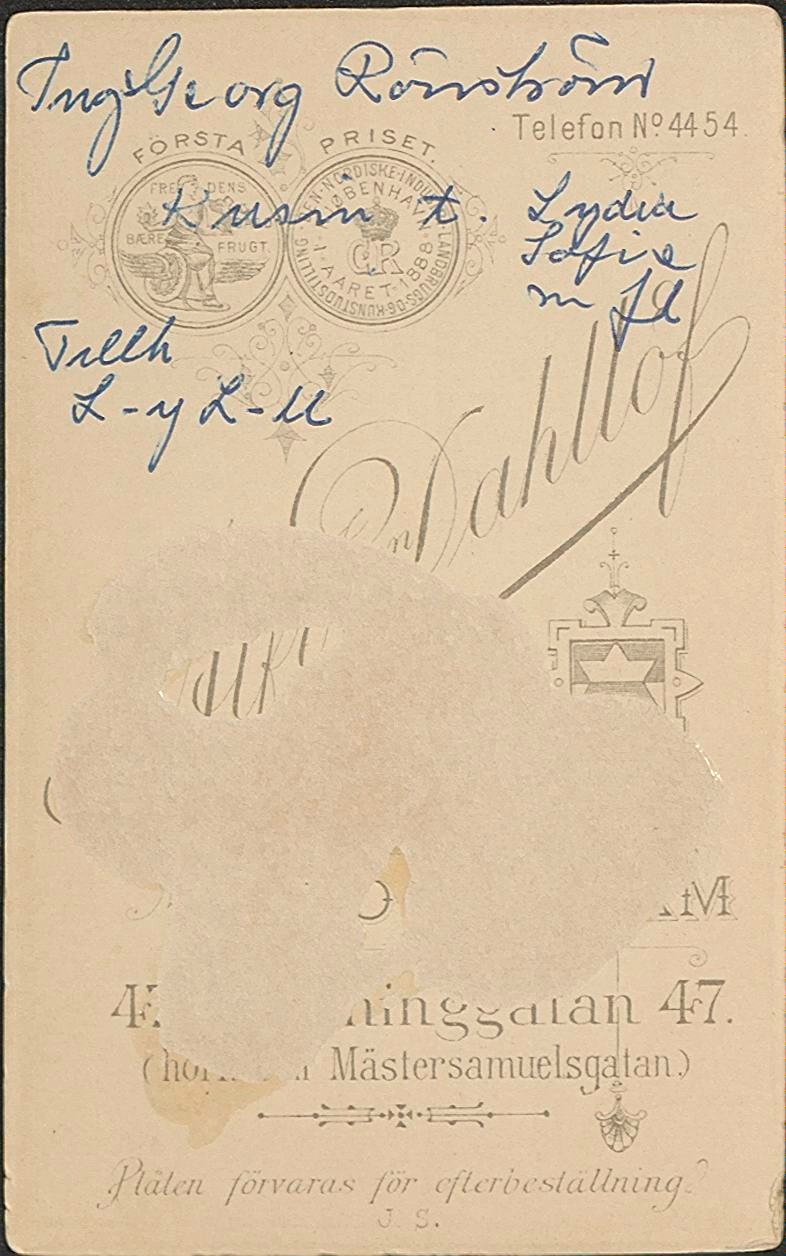 Ing Georg Rönström
Telefon Nº 4454.
FÖRSTA PRISET.
FREDENS
BÆRE FRUGT.
DEN-NORDISKE-INDUSTRI-LANDBRUGS-OG-KUNSTUDSTILLING
I KØBENHAVN
I AARET 1888
Kusin t. Lydia
Sofie
m fl
Tillh
L-y L-ll
Dahllöf
M
47. ninggatan 47.
(hörnet Mästersamuelsgatan.)
Plåten förvaras för efterbeställning
J. S.